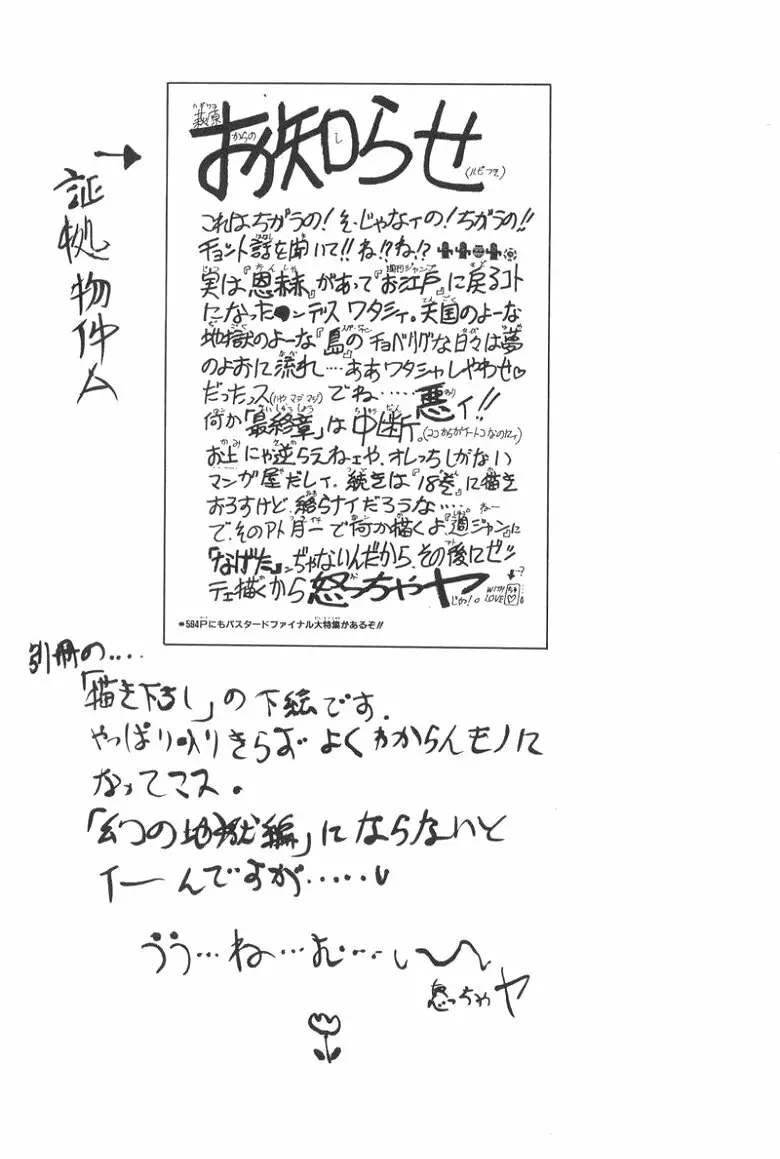 証拠物件A
萩原からのお知らせ(ルビつき)
これはちがうの!そ、じゃなィの!ちがうの!!
チョット話を聞いて!!ね!?ね!?
実は『恩赦』があって『お江戸』に戻るコト
になったンデス ワタシィ。天国のよーな
地獄のよーな『島』のチョベリグな日々は夢
のよおに流れ…ああワタシャしやわせ♡
だったっス(いや マジ マジ)でね……悪ィ!!
何か「最終章」は中断。(ココからがイートコなのにィ)
お上にゃ逆らえねェや、オレっちしがない
マンガ屋だしィ。続きは『18巻』に描き
おろすけど、終らナイだろうな…。ねー
で、そのアト月一で何か描くよ『週ジャン』に
「なげた」んぢゃないんだから、その後にゼッ
テェ描くから怒っちゃヤじゃ!。WITH LOVE
*594Pにもバスタードファイナル大特集があるぞ!!
別冊の‥‥
「描き下ろし」の下絵です.
やっぱり入りきらず よくわからんモノに
なってマス。
「幻の地獄編」にならないと
イーんですが‥‥‥
ゔゔ…ね…む…い〜
怒っちゃヤ